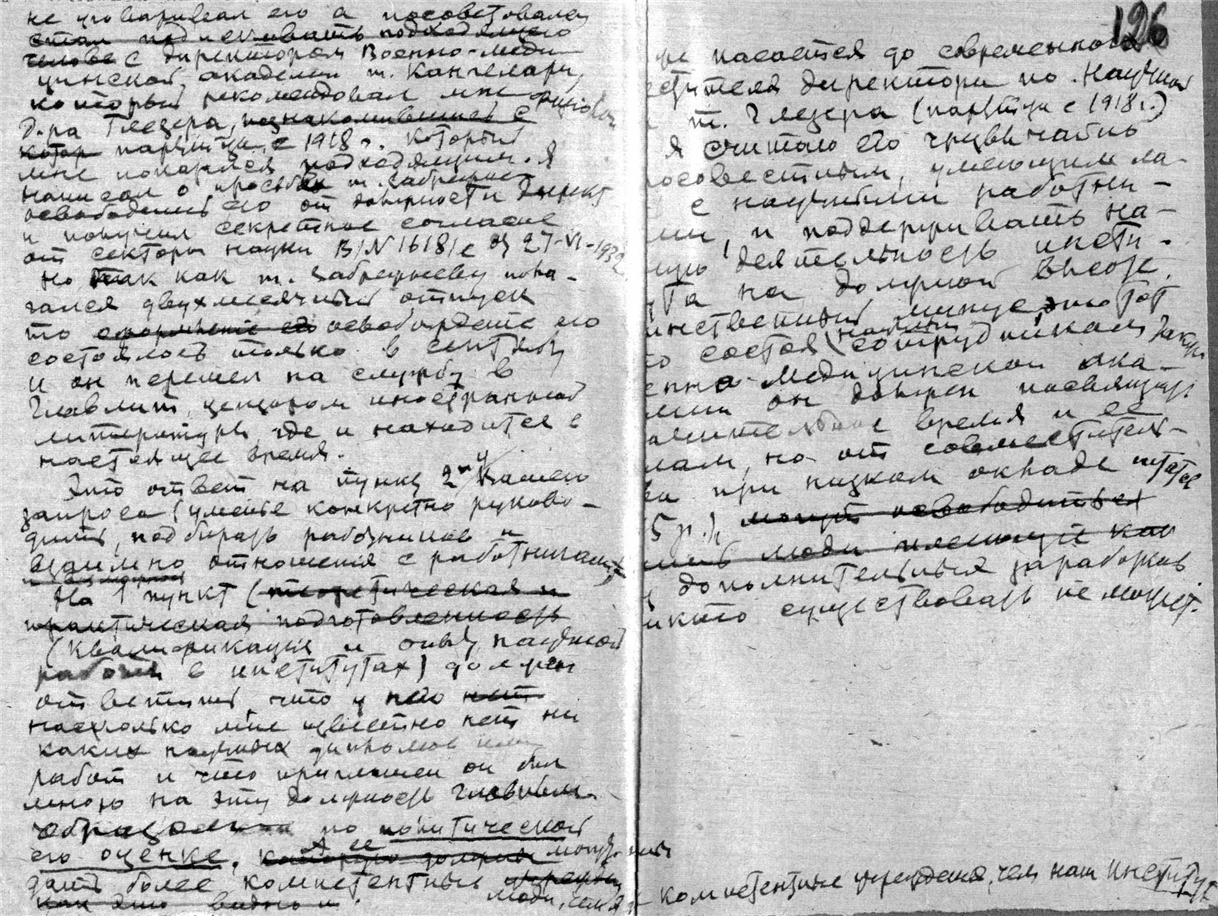 не уговаривал его а посоветовался
стал подискивать подходящего
человека с директором Военно-меди-
цинской академии т. Кангелари,
который рекомендовал мне
Д-ра Глезера, познакомившись с
котор партийца с 1918 г. который
мне показался подходящим. Я
написал о просьбе т. Забрежнев
освободить его от должности Директ
и получил секретное согласие
от сектора науки В/N 1618/с 27-VI-1932
Но так как т. Забрежневу пола-
гался двухмесячный отпуск
то освобождение его
состоялось только в
и он перешел на службу в
Главлит, цензором иностранной
литературы, где и находится в
настоящее время.
Это ответ на пункт 2й Вашего
запроса (умение конкретно руково-
дить, подбирать работников и
взаимно отношения с работниками
На 1 пункт (теоретическая и
практическая подготовленность
(квалификация и опыт научной
работы в институтах) должен
ответить, что у него нет
насколько мне известно нет ни
каких научных дипломов или
работ и что приглашен он был
мною на эту должность главным
образом по политической
его оценке, которую должны
дать более компетентные
как это видно и люди, чем я
126
же касается до современного
директора по научной
т. Глезера (партийца с 1918 г.)
я считаю его чрезвычайно
совестным, умеющим ла-
с научными работни-
ми, и поддерживать на-
ную деятельность инсти-
ута на должной высоте.
инственный минус этот
состоя сотрудником
енно-медицинской ака-
мии он должен посвящать
время и ее
лам, но от совместитель-
ва при низком окладе
5 р.), могут освободиться
люди
дополнительных заработков
никто существовать не может.
компетентные учреждения, чем наш Институт